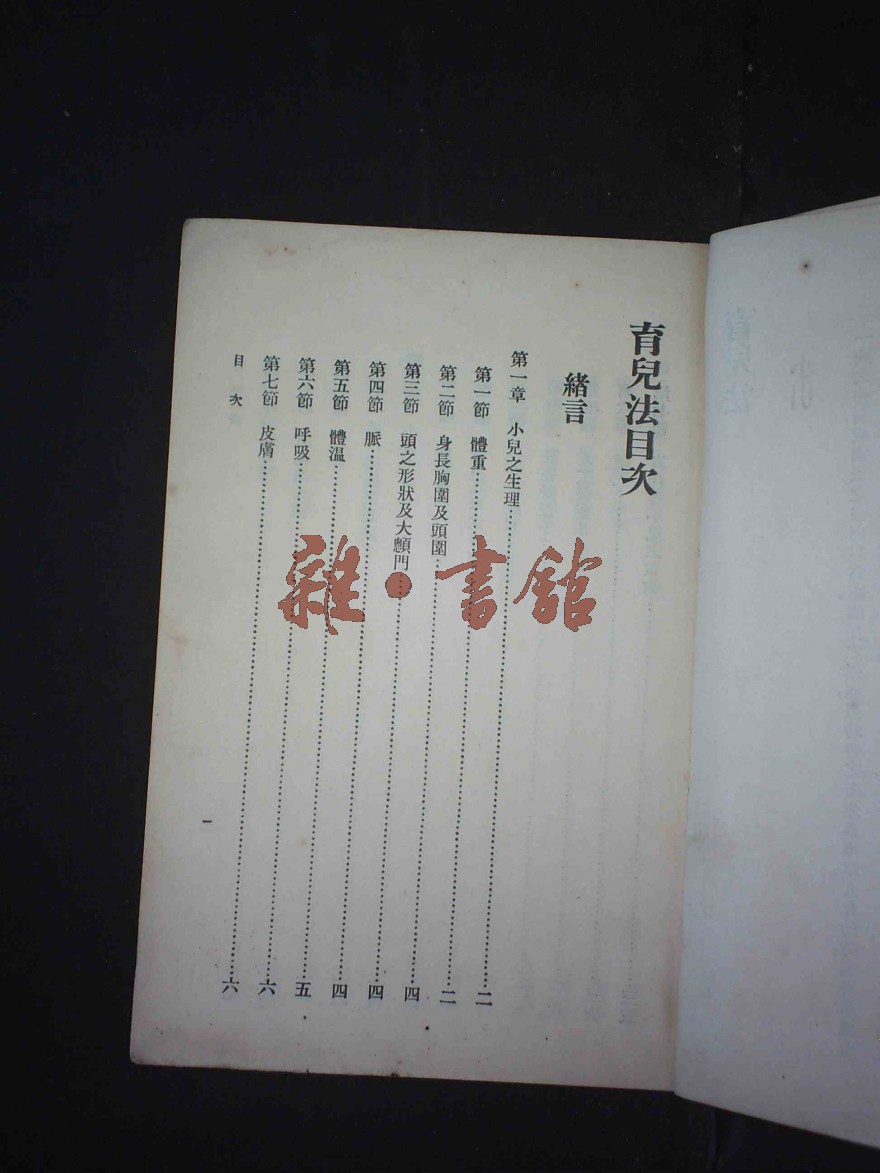 育兒法目次
緒言
第一章 小兒之生理……二
第一節 體重……二
第二節 身長胸圍及頭圍……四
第三節 頭之形狀及大顖門……四
第四節 脈……四
第五節 體溫……五
第六節 呼吸……六
第七節 皮膚……六
目次
一
雜·書館